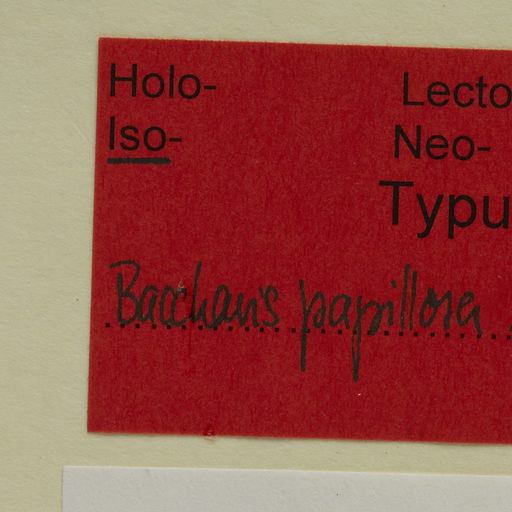 Holo- Lecto
Iso- Neo-
Typu
Baccharis papillosa